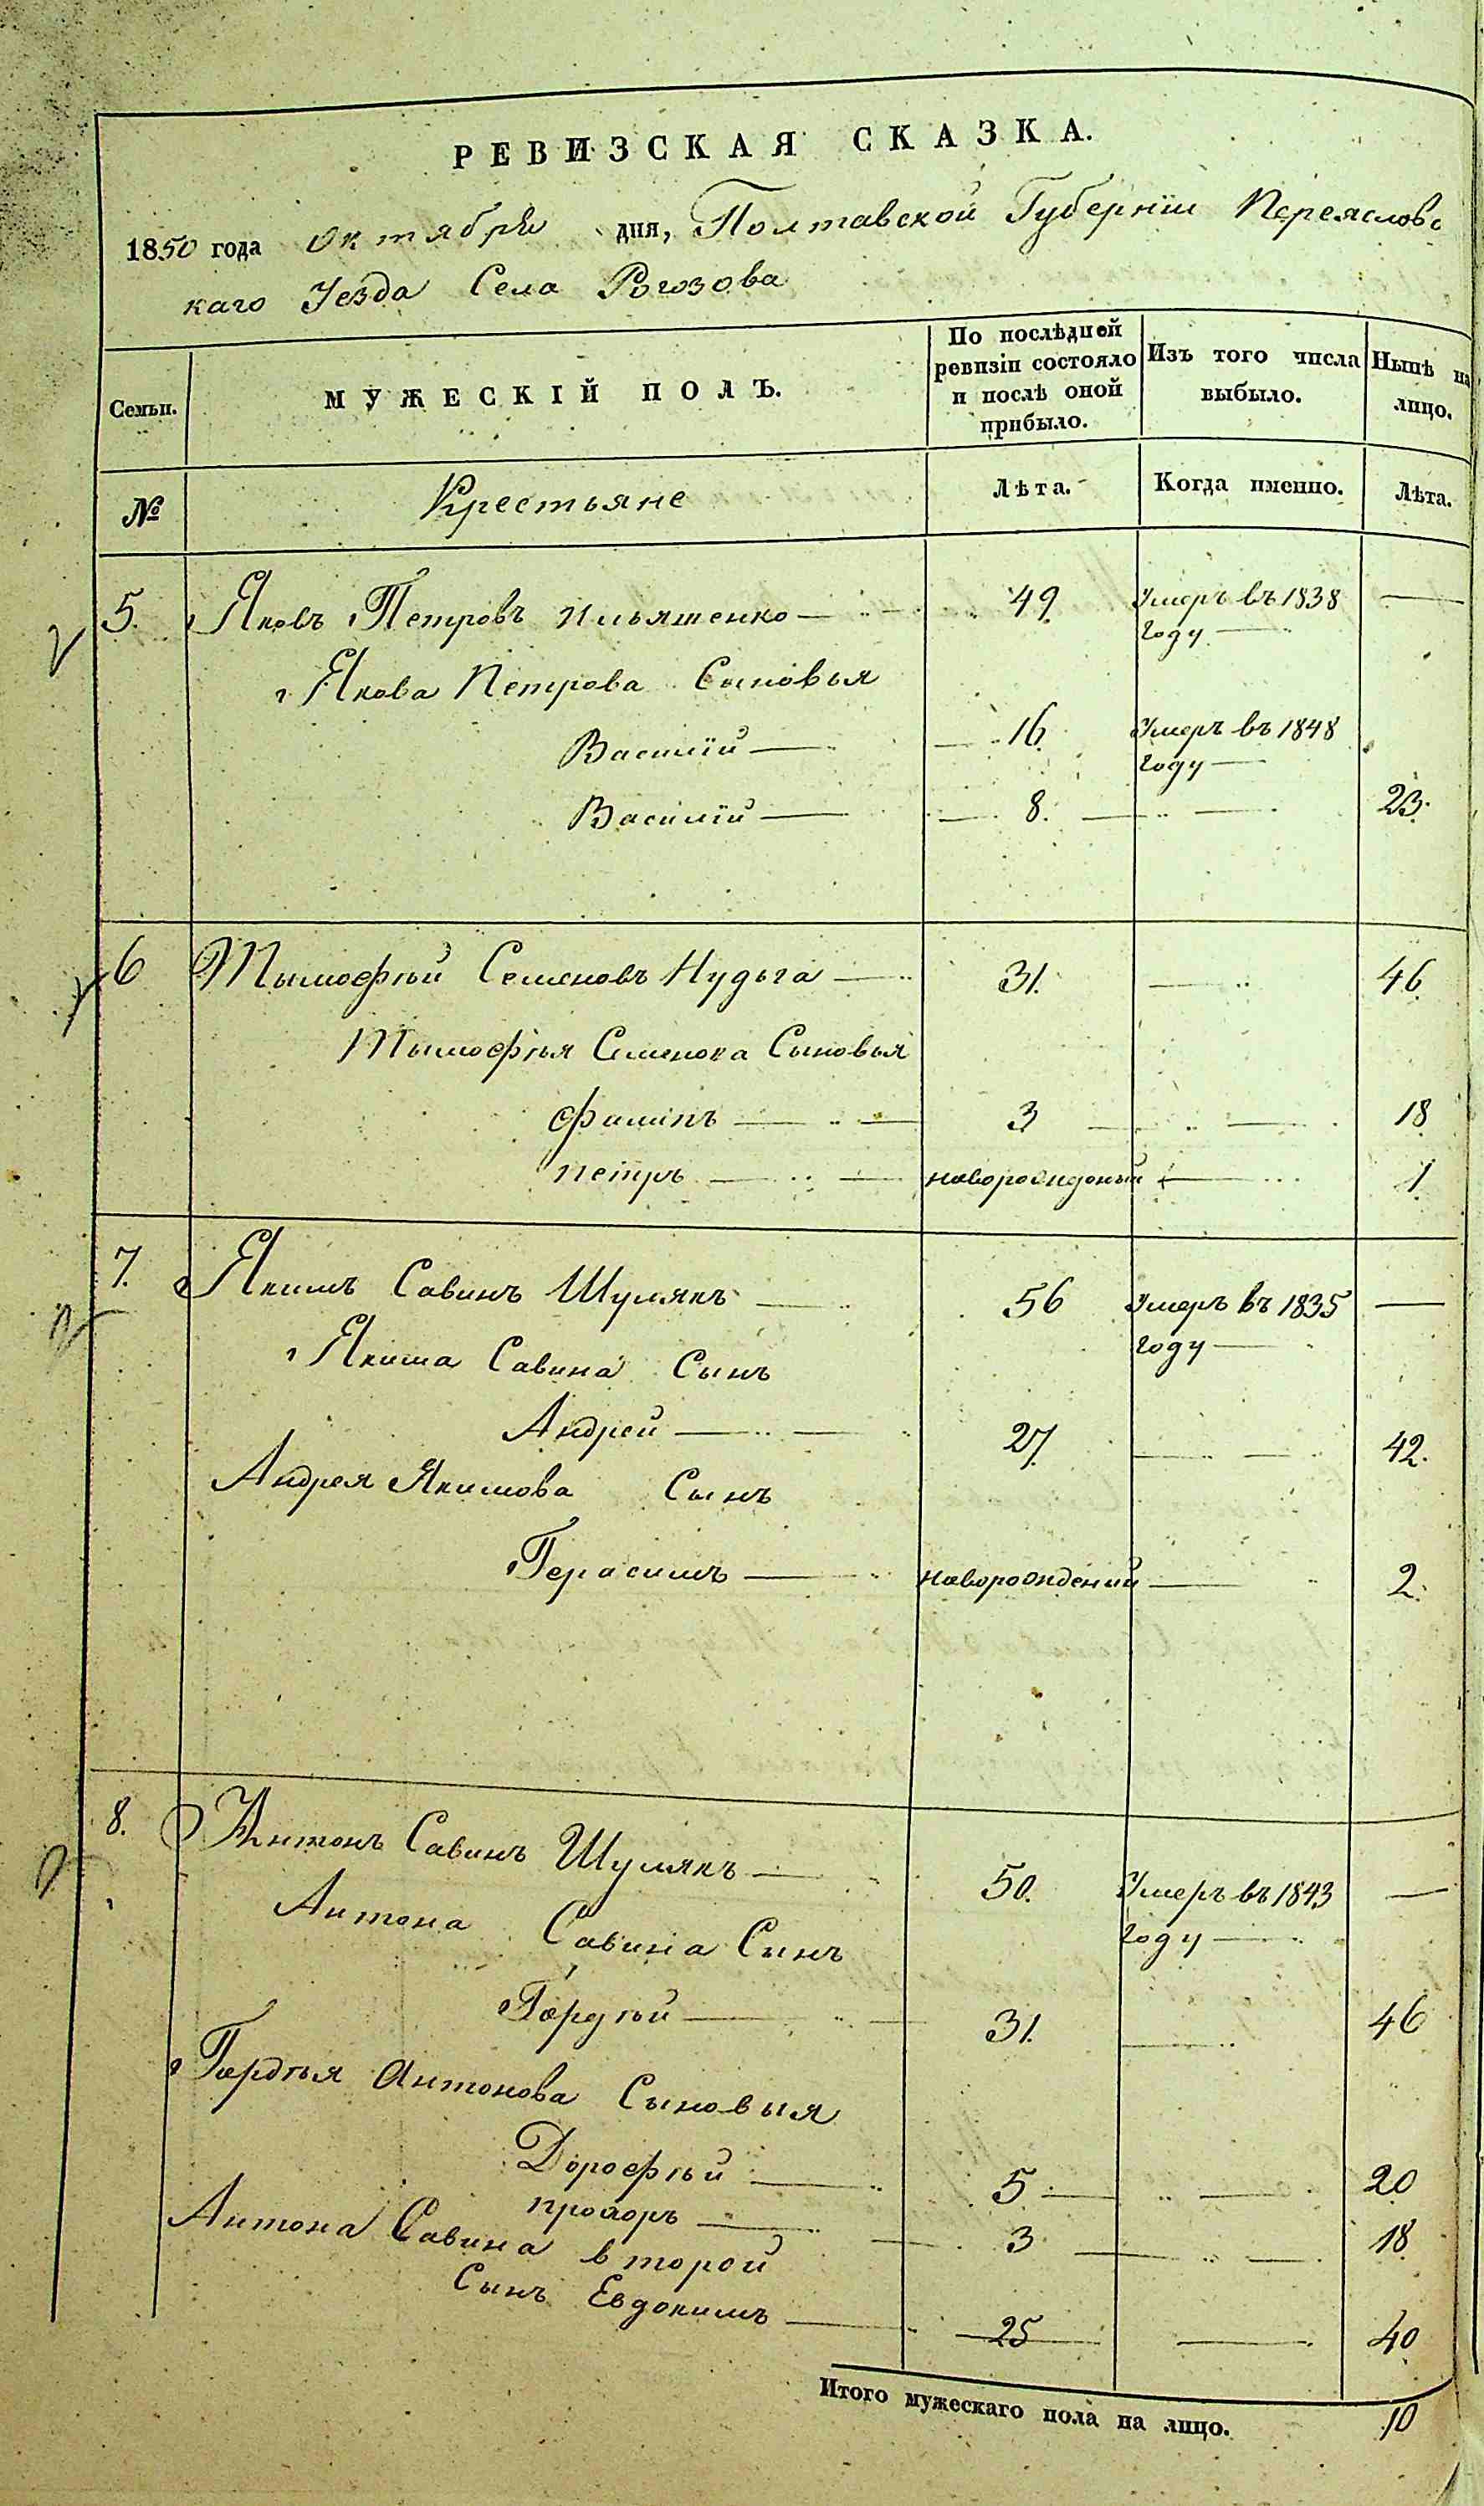 РЕВИЗСКАЯ СКАЗКА.
1850 года октября дня, Полтавской Губерніи Переяславс
каго Уезда Села Рогозова
Семьи. МУЖЕСКІЙ ПОЛЪ. По послѣдней ревизіи состояло и послѣ оной прибыло. Изъ того числа выбыло. Нынѣ на лицо.
№ Крестьяне Лѣта. Когда именно. Лѣта.
5. Яковъ Петровъ Ильяшенко — 49. Умеръ въ 1838 году — —
Якова Петрова Сыновья
Василій — 16. Умеръ въ 1848 году —
Василій — 8. — — 23.
6 Тымофѣй Семеновъ Нудьга — 31. — 46
Тымофѣя Семенова Сыновья
Филипъ — 3 — — 18
петръ — новорожденый — 1
7. Якимъ Савинъ Шулякъ — 56 Умеръ въ 1835 году — —
Якима Савина Сынъ
Андрей — 27 — 42.
Андрея Якимова Сынъ
Герасимъ — новорожденый — 2.
8. Антонъ Савинъ Шулякъ — 50. Умеръ въ 1843 году — —
Антона Савина Сынъ
Гордѣй — 31. — 46
Гордѣя Антонова Сыновья
Дорофѣй — 5 — — 20
прохоръ — 3 — — 18
Антона Савина второй
Сынъ Евдокимъ — 25 — 40
Итого мужескаго пола на лицо. 10